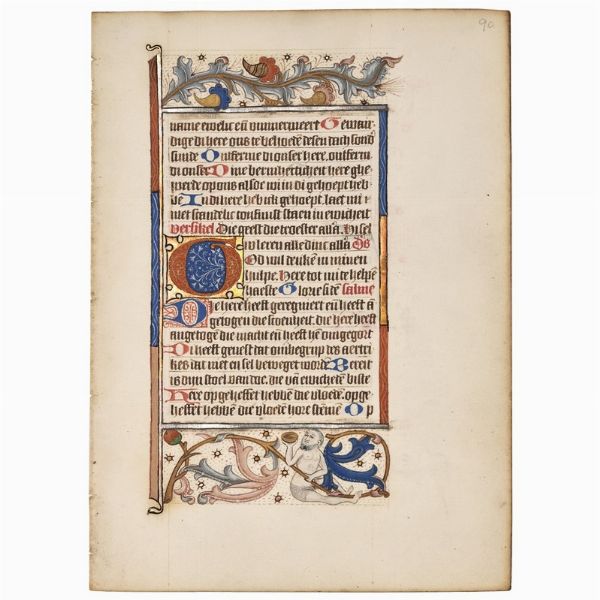 90
name ewelic en̄ ummermeert Gewaer
dige di here ons te behoetē desen dach sond'
sunde Ontferme di onser here. ontferm
di onser Dine bermherticheit here ghe
werde op ons alsoe wi in di gehoept heb
bē In di here heb ic gehoept. laet mi
niet scandelic confuust staen in ewicheit
versikel Die geest die troester aīa. Hi sel
u leren alle dinc aīīa
God wil denken in minen
hulpe. Here tot mi te helpē
haeste Glorie si dē salme
Die here heeft geregniert en̄ heeft ā
getogen die scoenheit. die here heeft
angetogē die macht en̄ heeft hē omgegort
Di heeft geuest dat ombegrijp des aertri
kes dat niet en sel beweget wordē Bereit
is dijn stoel van doe. die vā ewichetē biste
Here op geheffet hebbē die vloedē. op ge
heffet hebbē die vloedē hore stēmē Op